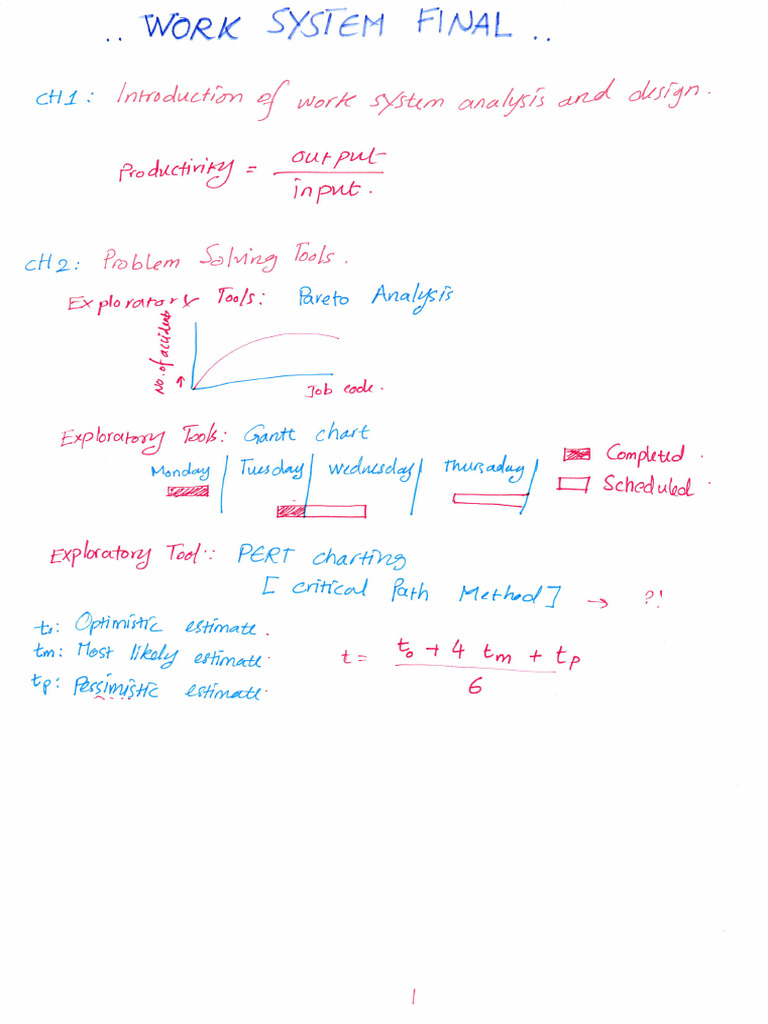 .. WORK SYSTEM FINAL ..
CH1: Introduction of work system analysis and design.
Productivity = output
input.
CH2: Problem Solving Tools.
Exploratory Tools: Pareto Analysis
No. of accident
Job code.
Exploratory Tools: Gantt chart
Completed.
Monday Tuesday Wednesday Thursaday
Scheduled.
Exploratory Tool:: PERT charting
[Critical Path Method] → ?!
to: Optimistic estimate.
tm: Most likely estimate.
tp: Pessimistic estimate.
t = to + 4 tm + tp
6
1